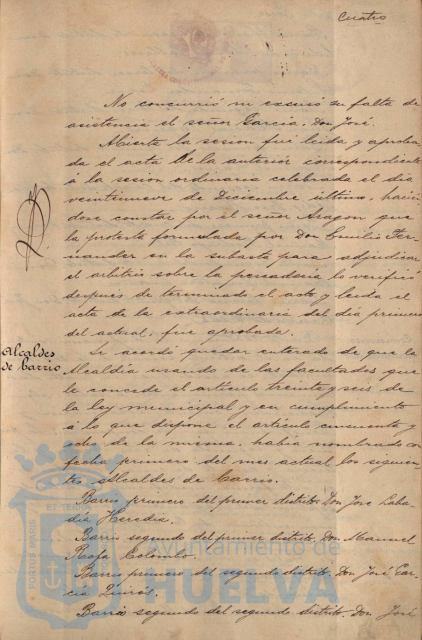 Cuatro
No concurrió ni excusó su falta de
asistencia el señor García, Don José.
Abierta la sesion fué leida y aproba-
da el acta de la anterior correspondiente
á la sesion ordinaria celebrada el dia
veintinueve de Diciembre último, hacien-
dose constar por el señor Aragon que
la protesta formulada por Don Emilio Fer-
nandez en la subasta para adjudicar
el arbitrio sobre la pescadería lo verificó
después de terminado el acto y leida el
acta de la extraordinaria del dia primero
del actual, fue aprobada.
Alcaldes
de barrio
Se acordó quedar enterado de que la
Alcaldía usando de las facultades que
le concede el artículo treinta y seis de
la ley municipal y en cumplimiento
á lo que dispone el artículo cincuenta y
ocho de la misma, habia nombrado con
fecha primero del mes actual los siguien-
tes Alcaldes de barrio.
Barrio primero del primer distrito. Don José Laba-
día Heredia.
Barrio segundo del primer distrito. Don Manuel
Rofa Colombo.
Barrio primero del segundo distrito. Don José Gar-
cía Quirós.
Barrio segundo del segundo distrito. Don José
Ayuntamiento de
HUELVA